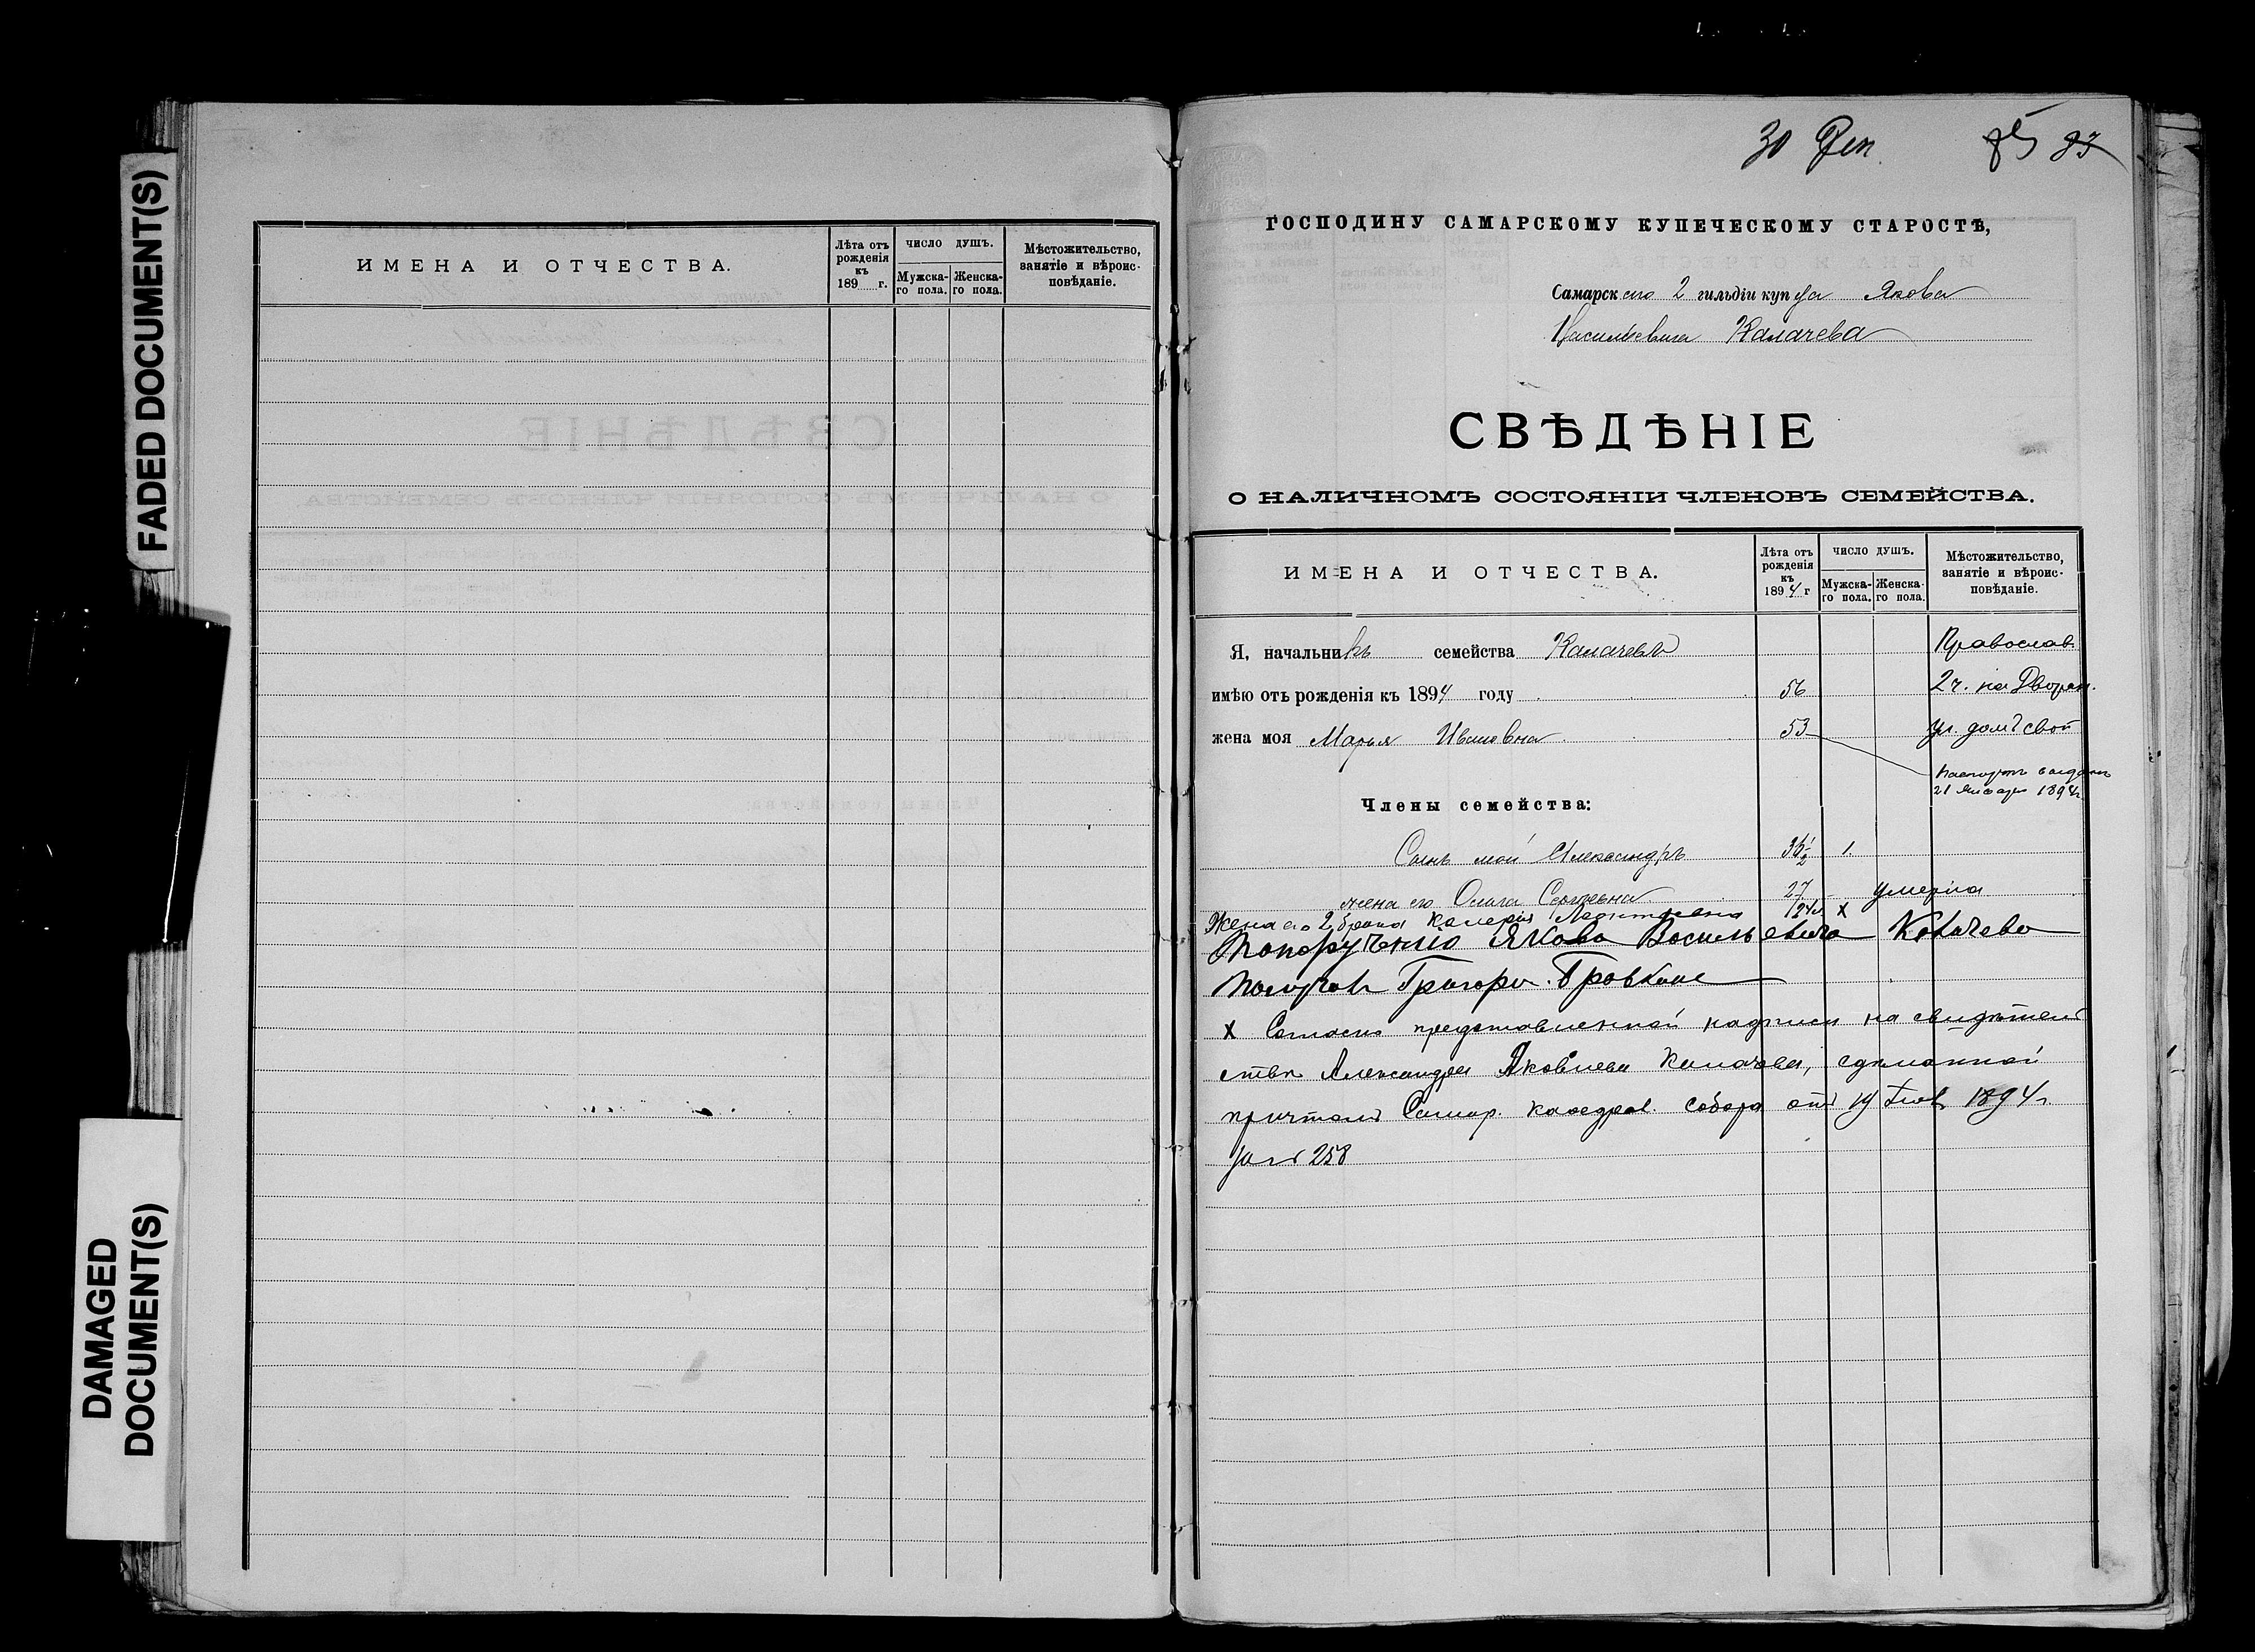 FADED DOCUMENT(S)
DAMAGED
DOCUMENT(S)
ИМЕНА И ОТЧЕСТВА.
Лѣта отъ рожденія къ 189 г.
ЧИСЛО ДУШЪ.
Мужска-го пола.
Женска-го пола.
Мѣстожительство, занятіе и вѣроис-повѣданіе.
30 Дек. 83
ГОСПОДИНУ САМАРСКОМУ КУПЕЧЕСКОМУ СТАРОСТѢ,
Самарскаго 2 гильдіи купца Якова
Васильевича Калачева
СВѢДѢНІЕ
О НАЛИЧНОМЪ СОСТОЯНІИ ЧЛЕНОВЪ СЕМЕЙСТВА.
ИМЕНА И ОТЧЕСТВА.
Лѣта отъ рожденія къ 1894 г
ЧИСЛО ДУШЪ.
Мужска-го пола.
Женска-го пола.
Мѣстожительство, занятіе и вѣроис-повѣданіе.
Я, начальникъ семейства Калачевъ Православ.
имѣю отъ рожденія къ 1894 году 56 2 ч. на Дворян.
жена моя Марья Ивановна 53 ул. домъ свой
Паспортъ выданъ
21 Января 1894 г.
Члены семейства:
Сынъ мой Александръ 1.
жена его Ольга Сергѣевна 27 умерла
Жена его 2 брака Валерія 24 х
По порученію Якова Васильевича Калачева
получилъ Григори
х Согласно представленной надписи на свидѣтель
ствѣ Александра Яковлева Калачева, сдѣланной
причтомъ Самар. каѳедрал. собора отъ 19 1894 г.
за № 258